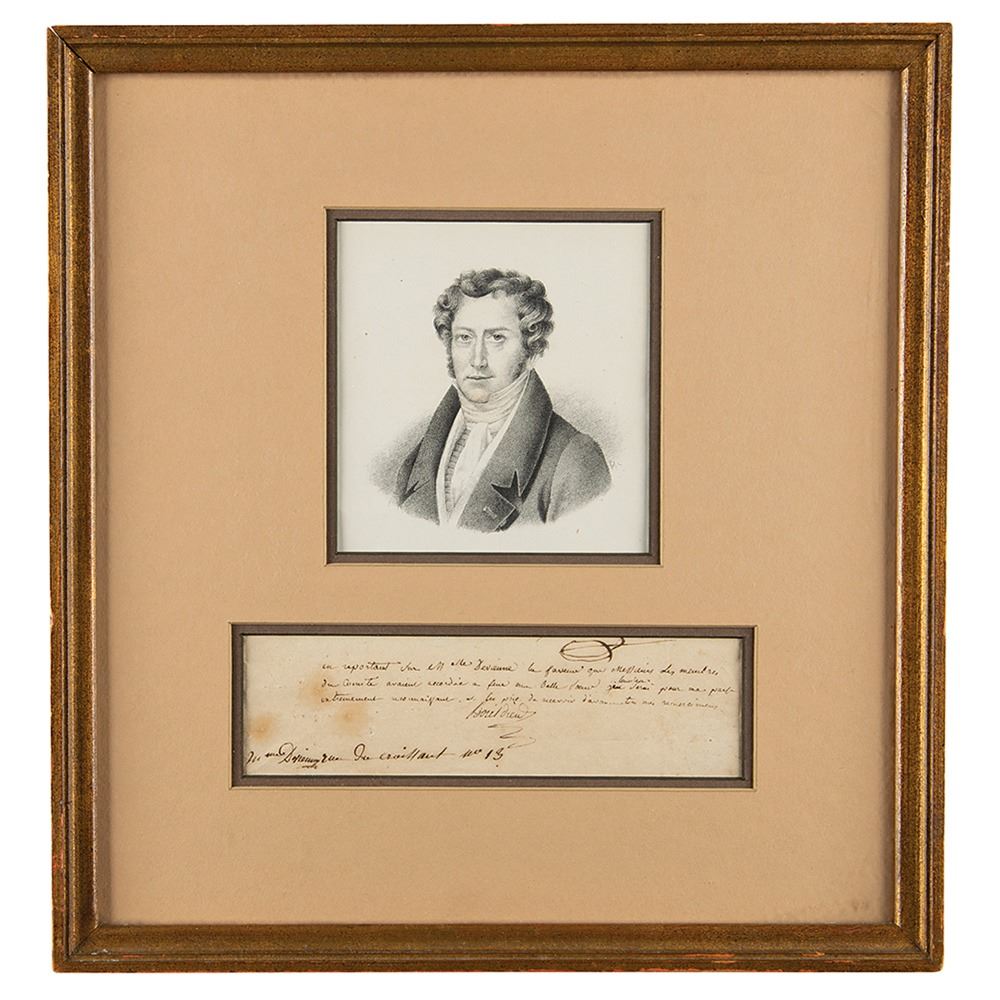 en reportant sur M elle Desaune la faveur que Messieurs les membres
du Comité avaient accordée a feue ma belle soeur j'en serai pour ma part
extremement reconnaissant et les prie de recevoir d'avance tous mes remerciemens
Boieldieu
rue du croissant no 13